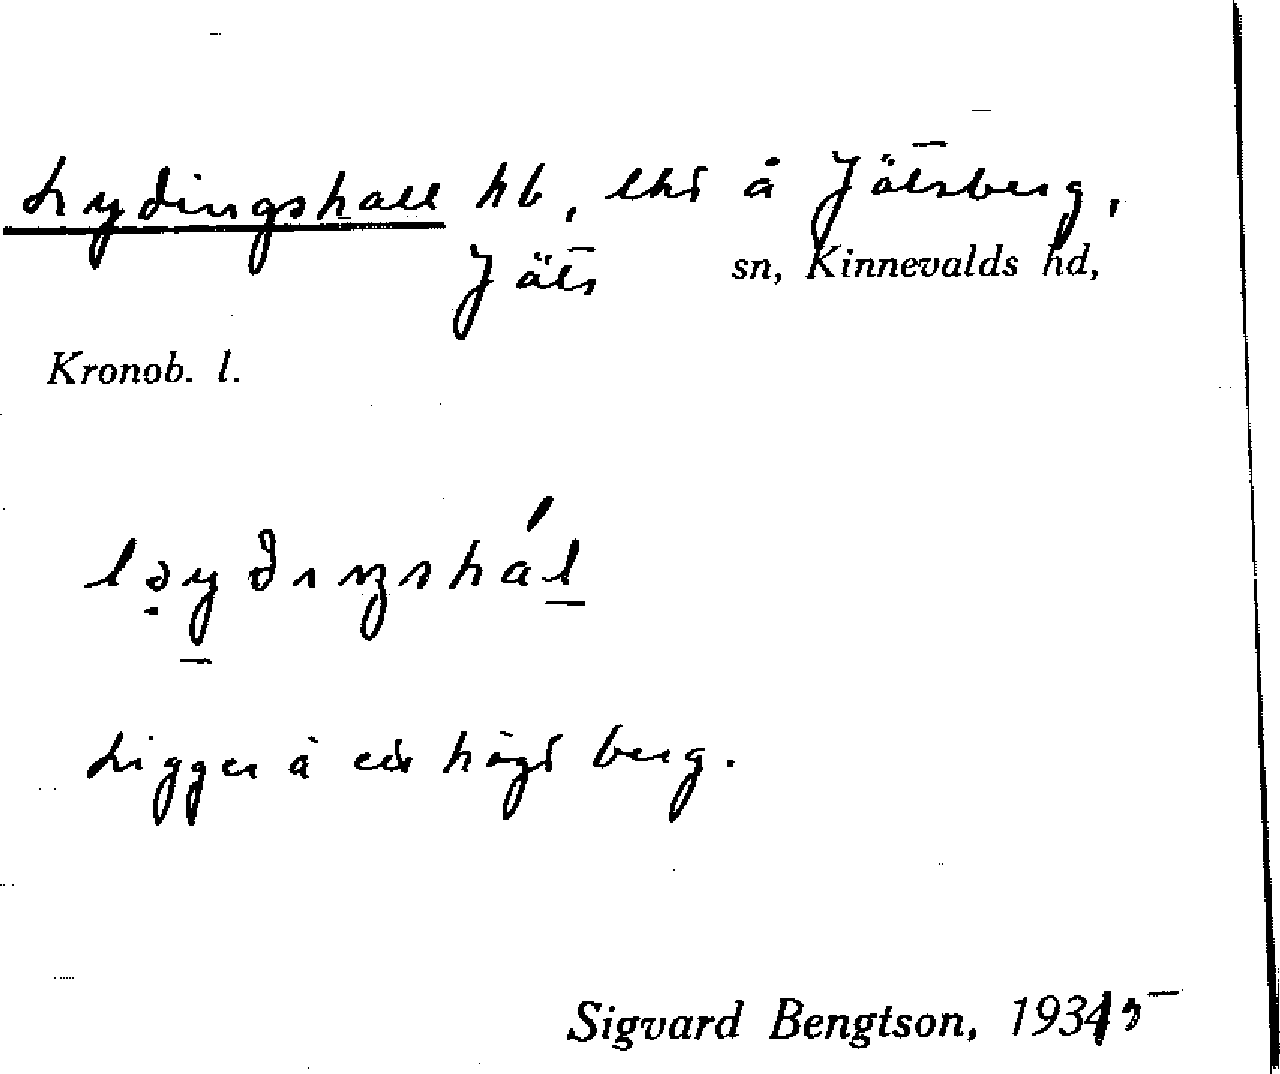 Lydingshall hb, lht å Jätsberg,
Jäts sn, Kinnevalds hd,
Kronob. l.
Ligger å ett högt berg.
Sigvard Bengtson, 1935